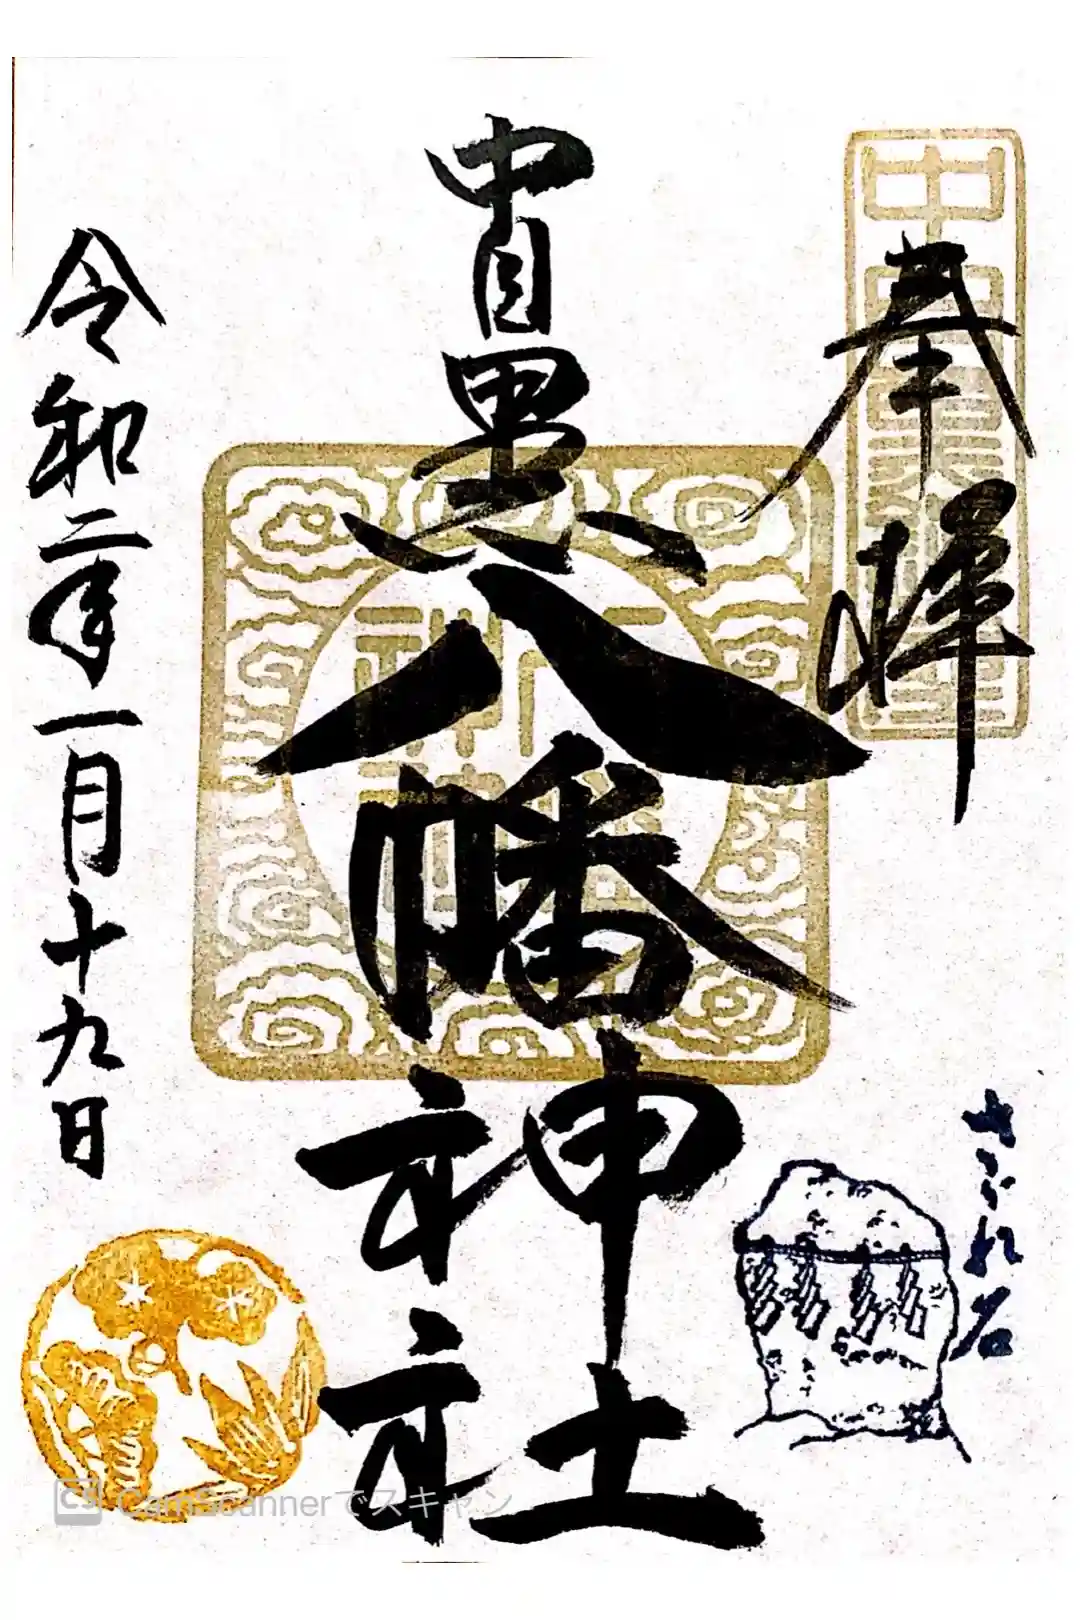 奉拝
中目黒八幡神社
令和二年一月十九日
さざれ石
CS CamScannerでスキャン